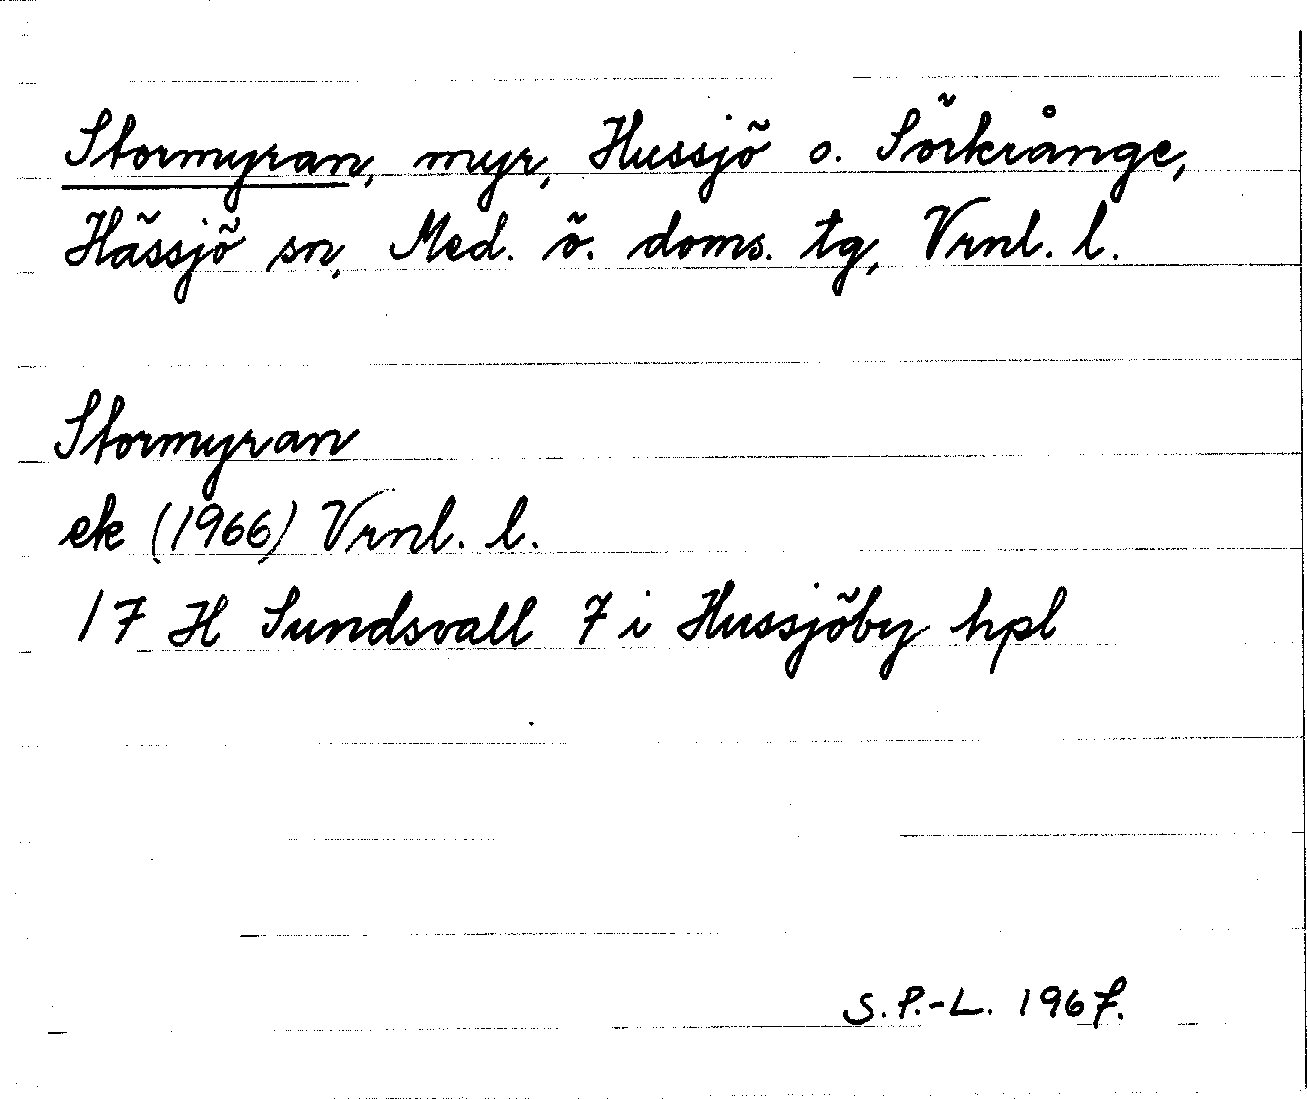 Stormyran, myr, Hussjö o. Sörkrånge,
Hässjö sn, Med. ö. doms. tg, Vrnl. l.
Stormyran
ek (1966) Vrnl. l.
17 H Sundsvall 7 i Hussjöby hpl
S. P.-L. 1967.